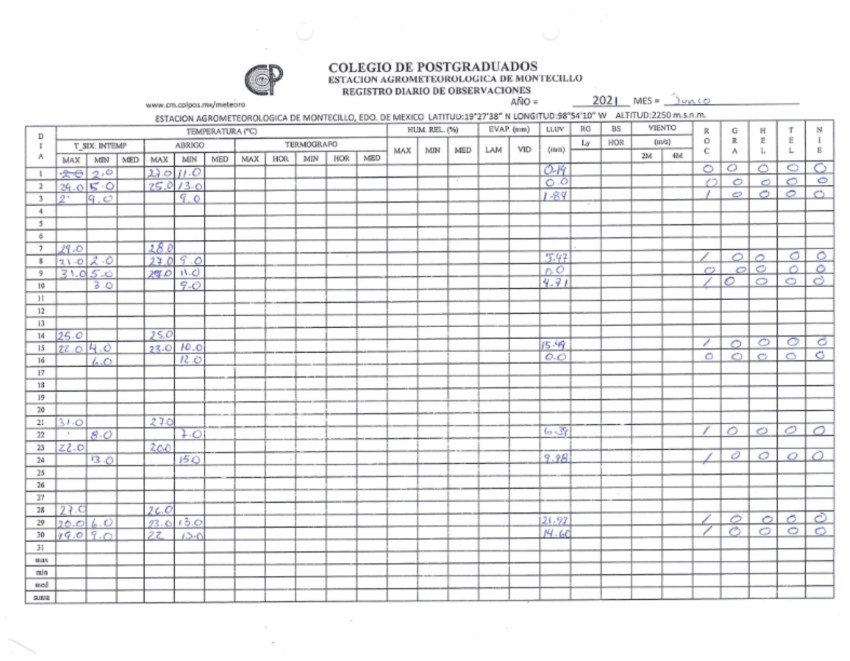 COLEGIO DE POSTGRADUADOS
ESTACION AGROMETEOROLOGICA DE MONTECILLO
REGISTRO DIARIO DE OBSERVACIONES
www.cm.colpos.mx/meteoro AÑO = 2021 MES = Junio
ESTACION AGROMETEOROLOGICA DE MONTECILLO, EDO. DE MEXICO LATITUD:19°27'38" N LONGITUD:98°54'10" W ALTITUD:2250 m.s.n.m.
DIA TEMPERATURA (°C) HUM. REL. (%) EVAP. (mm) LLUV RG BS VIENTO ROC GRA HEL TEL NIE
T_SIX: INTEMP ABRIGO TERMOGRAFO (mm) Ly HOR (m/s)
MAX MIN MED MAX MIN MED MAX HOR MIN HOR MED MAX MIN MED LAM VID 2M 4M
1 2.0 27.0 11.0 0.19 0 0 0 0 0
2 29.0 5.0 25.0 13.0 0.0 0 0 0 0 0
3 9.0 9.0 1.89 1 0 0 0 0
4
5
6
7 29.0 28.0
8 31.0 2.0 27.0 9.0 5.47 1 0 0 0 0
9 31.0 5.0 11.0 0.0 0 0 0 0 0
10 3.0 9.0 9.71 1 0 0 0 0
11
12
13
14 25.0 25.0
15 22.0 4.0 23.0 10.0 15.49 1 0 0 0 0
16 6.0 12.0 0.0 0 0 0 0 0
17
18
19
20
21 31.0 27.0
22 8.0 7.0 1 0 0 0 0
23 22.0 20.0
24 13.0 15.0 9.98 1 0 0 0 0
25
26
27
28 27.0 26.0
29 20.0 6.0 23.0 13.0 21.92 1 0 0 0 0
30 19.0 9.0 22 13.0 14.60 1 0 0 0 0
31
max
min
med
suma